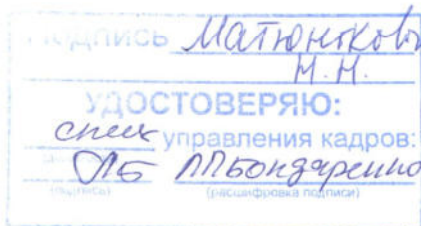 ПОДПИСЬ Матюнькова
Н.Н.
УДОСТОВЕРЯЮ:
спец управления кадров:
ЛПБондаренко
(подпись) (расшифровка подписи)